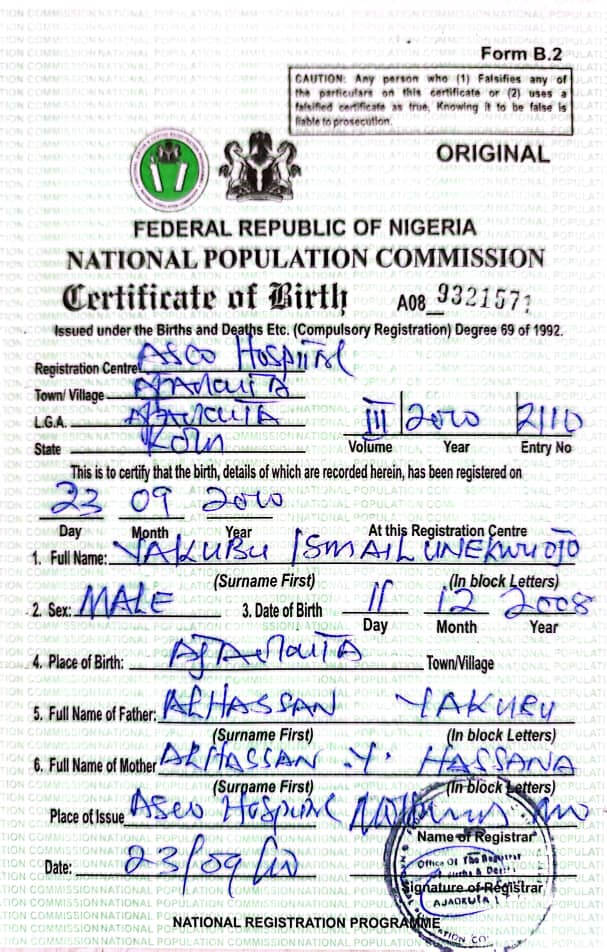 Form B.2
CAUTION: Any person who (1) Falsifies any of
the particulars on this certificate or (2) uses a
falsified certificate as true, Knowing it to be false is
liable to prosecution.
ORIGINAL
FEDERAL REPUBLIC OF NIGERIA
NATIONAL POPULATION COMMISSION
Certificate of Birth A08 9321571
Issued under the Births and Deaths Etc. (Compulsory Registration) Degree 69 of 1992.
Registration Centre ASCO HOSPITAL
Town/ Village AJAOKUTA
L.G.A. AJAOKUTA
State KOGI
III 2010 2110
Volume Year Entry No
This is to certify that the birth, details of which are recorded herein, has been registered on
23 09 2010
Day Month Year At this Registration Centre
1. Full Name: YAKUBU ISMAIL UNEKWUOJO
(Surname First) (In block Letters)
2. Sex: MALE 3. Date of Birth 11 12 2008
Day Month Year
4. Place of Birth: AJAOKUTA Town/Village
5. Full Name of Father: ALHASSAN YAKUBU
(Surname First) (In block Letters)
6. Full Name of Mother ALHASSAN .Y. HASSANA
(Surname First) (In block Letters)
Place of Issue ASCO Hospital
Name of Registrar
Date: 23/09/10
Office Of The Registrar
of Births & Deaths
Signature of Registrar
AJAOKUTA
NATIONAL REGISTRATION PROGRAMME